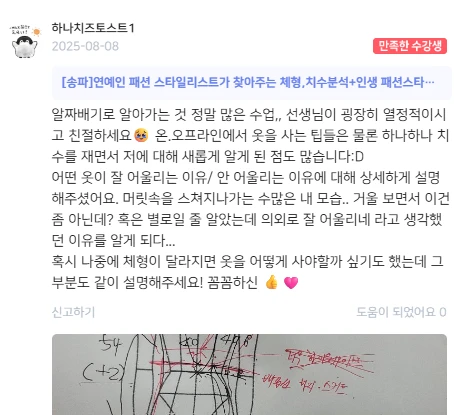 하나치즈토스트1
2025-08-08
만족한 수강생
[송파]연예인 패션 스타일리스트가 찾아주는 체형,치수분석+인생 패션스타…
알짜배기로 알아가는 것 정말 많은 수업,, 선생님이 굉장히 열정적이시
고 친절하세요🥹 온.오프라인에서 옷을 사는 팁들은 물론 하나하나 치
수를 재면서 저에 대해 새롭게 알게 된 점도 많습니다:D
어떤 옷이 잘 어울리는 이유/ 안 어울리는 이유에 대해 상세하게 설명
해주셨어요. 머릿속을 스쳐지나가는 수많은 내 모습.. 거울 보면서 이건
좀 아닌데? 혹은 별로일 줄 알았는데 의외로 잘 어울리네 라고 생각했
던 이유를 알게 되다...
혹시 나중에 체형이 달라지면 옷을 어떻게 사야할까 싶기도 했는데 그
부분도 같이 설명해주세요! 꼼꼼하신 👍 💗
신고하기
도움이 되었어요 0
54
(+2)